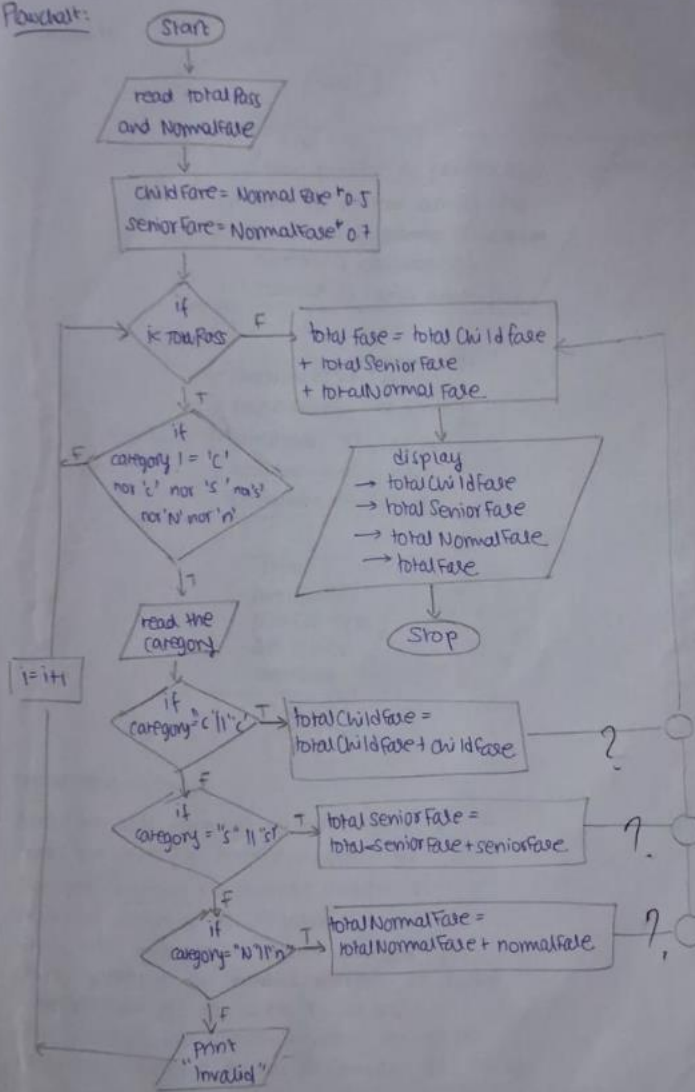 Flowchart:
Start
read totalPass
and NormalFare
childFare = NormalFare * 0.5
seniorFare = NormalFare * 0.7
if
i< TotalPass
F
T
totalFare = totalChildFare
+ totalSeniorFare
+ totalNormalFare
if
category != 'C'
nor 'c' nor 'S' nor 's'
nor 'N' nor 'n'
F
T
display
→ totalChildFare
→ totalSeniorFare
→ totalNormalFare
→ totalFare
Stop
read the
category
i = i+1
if
category="C"||"c"
T
F
totalChildFare =
totalChildFare + childFare
?
if
category = "S" || "s"
T
F
total seniorFare =
total-seniorFare + seniorFare
?
if
category="N"||"n"
T
F
totalNormalFare =
totalNormalFare + normalFare
?
Print
"Invalid"